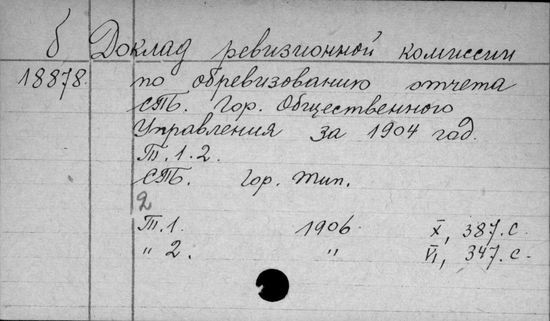 б Доклад ревизионной комиссии
18878. по обревизованию отчета
СПБ. Гор. Общественного
Управления за 1904 год.
Т. 1. 2.
СПБ. Гор. тип.
2
Т. 1. 1906 X, 387. с.
„ 2. „ VI, 347. с.